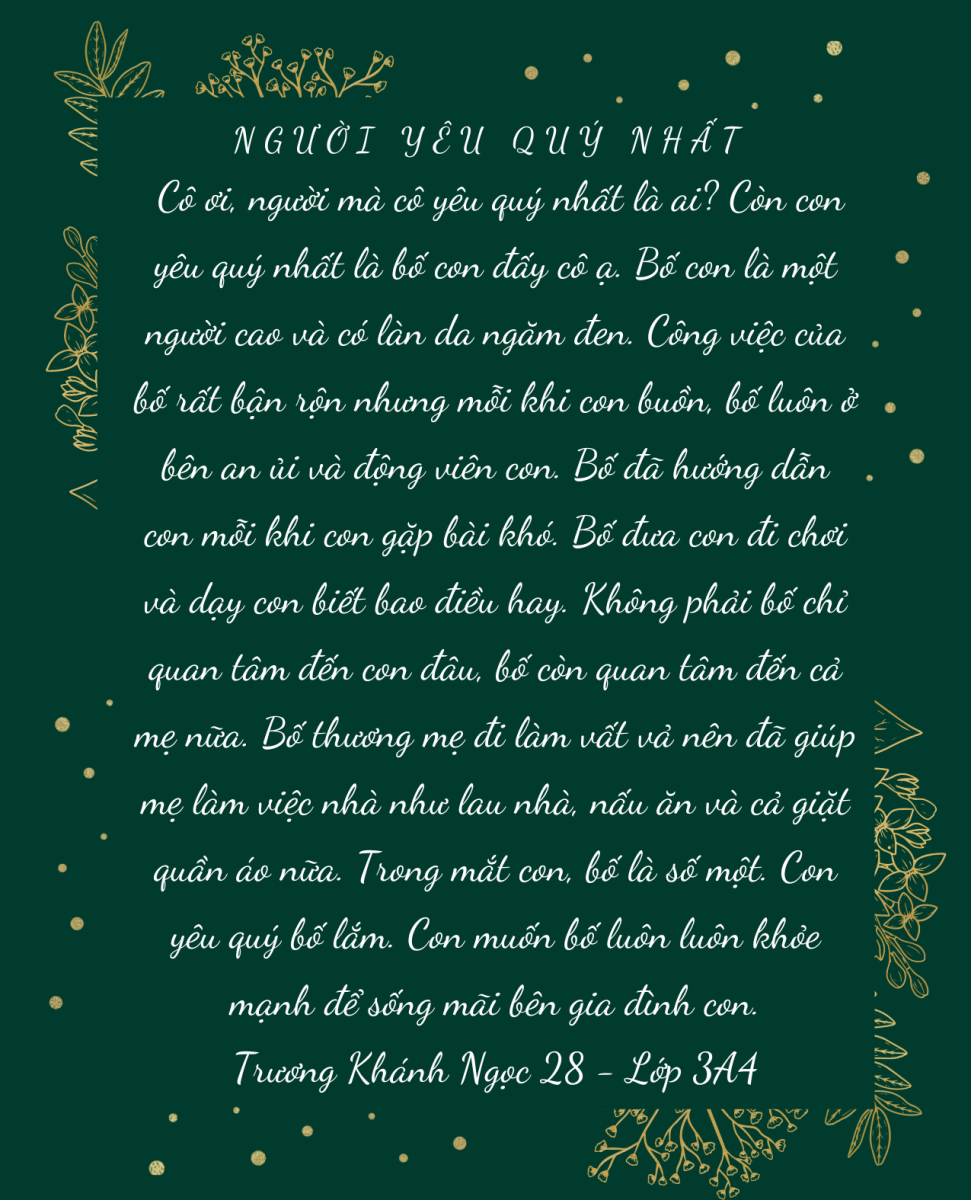 NGƯỜI YÊU QUÝ NHẤT
Cô ơi, người mà cô yêu quý nhất là ai? Còn con
yêu quý nhất là bố con đấy cô ạ. Bố con là một
người cao và có làn da ngăm đen. Công việc của
bố rất bận rộn nhưng mỗi khi con buồn, bố luôn ở
bên an ủi và động viên con. Bố đã hướng dẫn
con mỗi khi con gặp bài khó. Bố đưa con đi chơi
và dạy con biết bao điều hay. Không phải bố chỉ
quan tâm đến con đâu, bố còn quan tâm đến cả
mẹ nữa. Bố thương mẹ đi làm vất vả nên đã giúp
mẹ làm việc nhà như lau nhà, nấu ăn và cả giặt
quần áo nữa. Trong mắt con, bố là số một. Con
yêu quý bố lắm. Con muốn bố luôn luôn khỏe
mạnh để sống mãi bên gia đình con.
Trương Khánh Ngọc 28 - Lớp 3A4